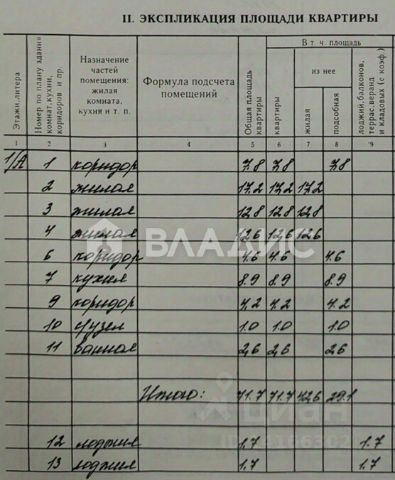 II. ЭКСПЛИКАЦИЯ ПЛОЩАДИ КВАРТИРЫ
Этажи, литера | Номер по плану здания комнат, кухни, коридоров и пр. | Назначение частей помещения: жилая комната, кухня и т. п. | Формула подсчета помещений | Общая площадь квартиры | В т. ч. площадь | лоджий, балконов, террас, веранд и кладовых (с коэф.)
квартиры | из нее
жилая | подсобная
1 2 3 4 5 6 7 8 9
1/А 1 коридор 7.8 7.8 7.8
2 жилая 17.2 17.2 17.2
3 жилая 12.8 12.8 12.8
4 жилая 12.6 12.6 12.6
6 коридор 4.6 4.6 4.6
7 кухня 8.9 8.9 8.9
9 коридор 4.2 4.2 4.2
10 с/узел 1.0 1.0 1.0
11 ванная 2.6 2.6 2.6
Итого: 71.7 71.7 42.6 29.1
12 лоджия 1.7 1.7
13 лоджия 1.7 1.7
ВЛАДИС
циан